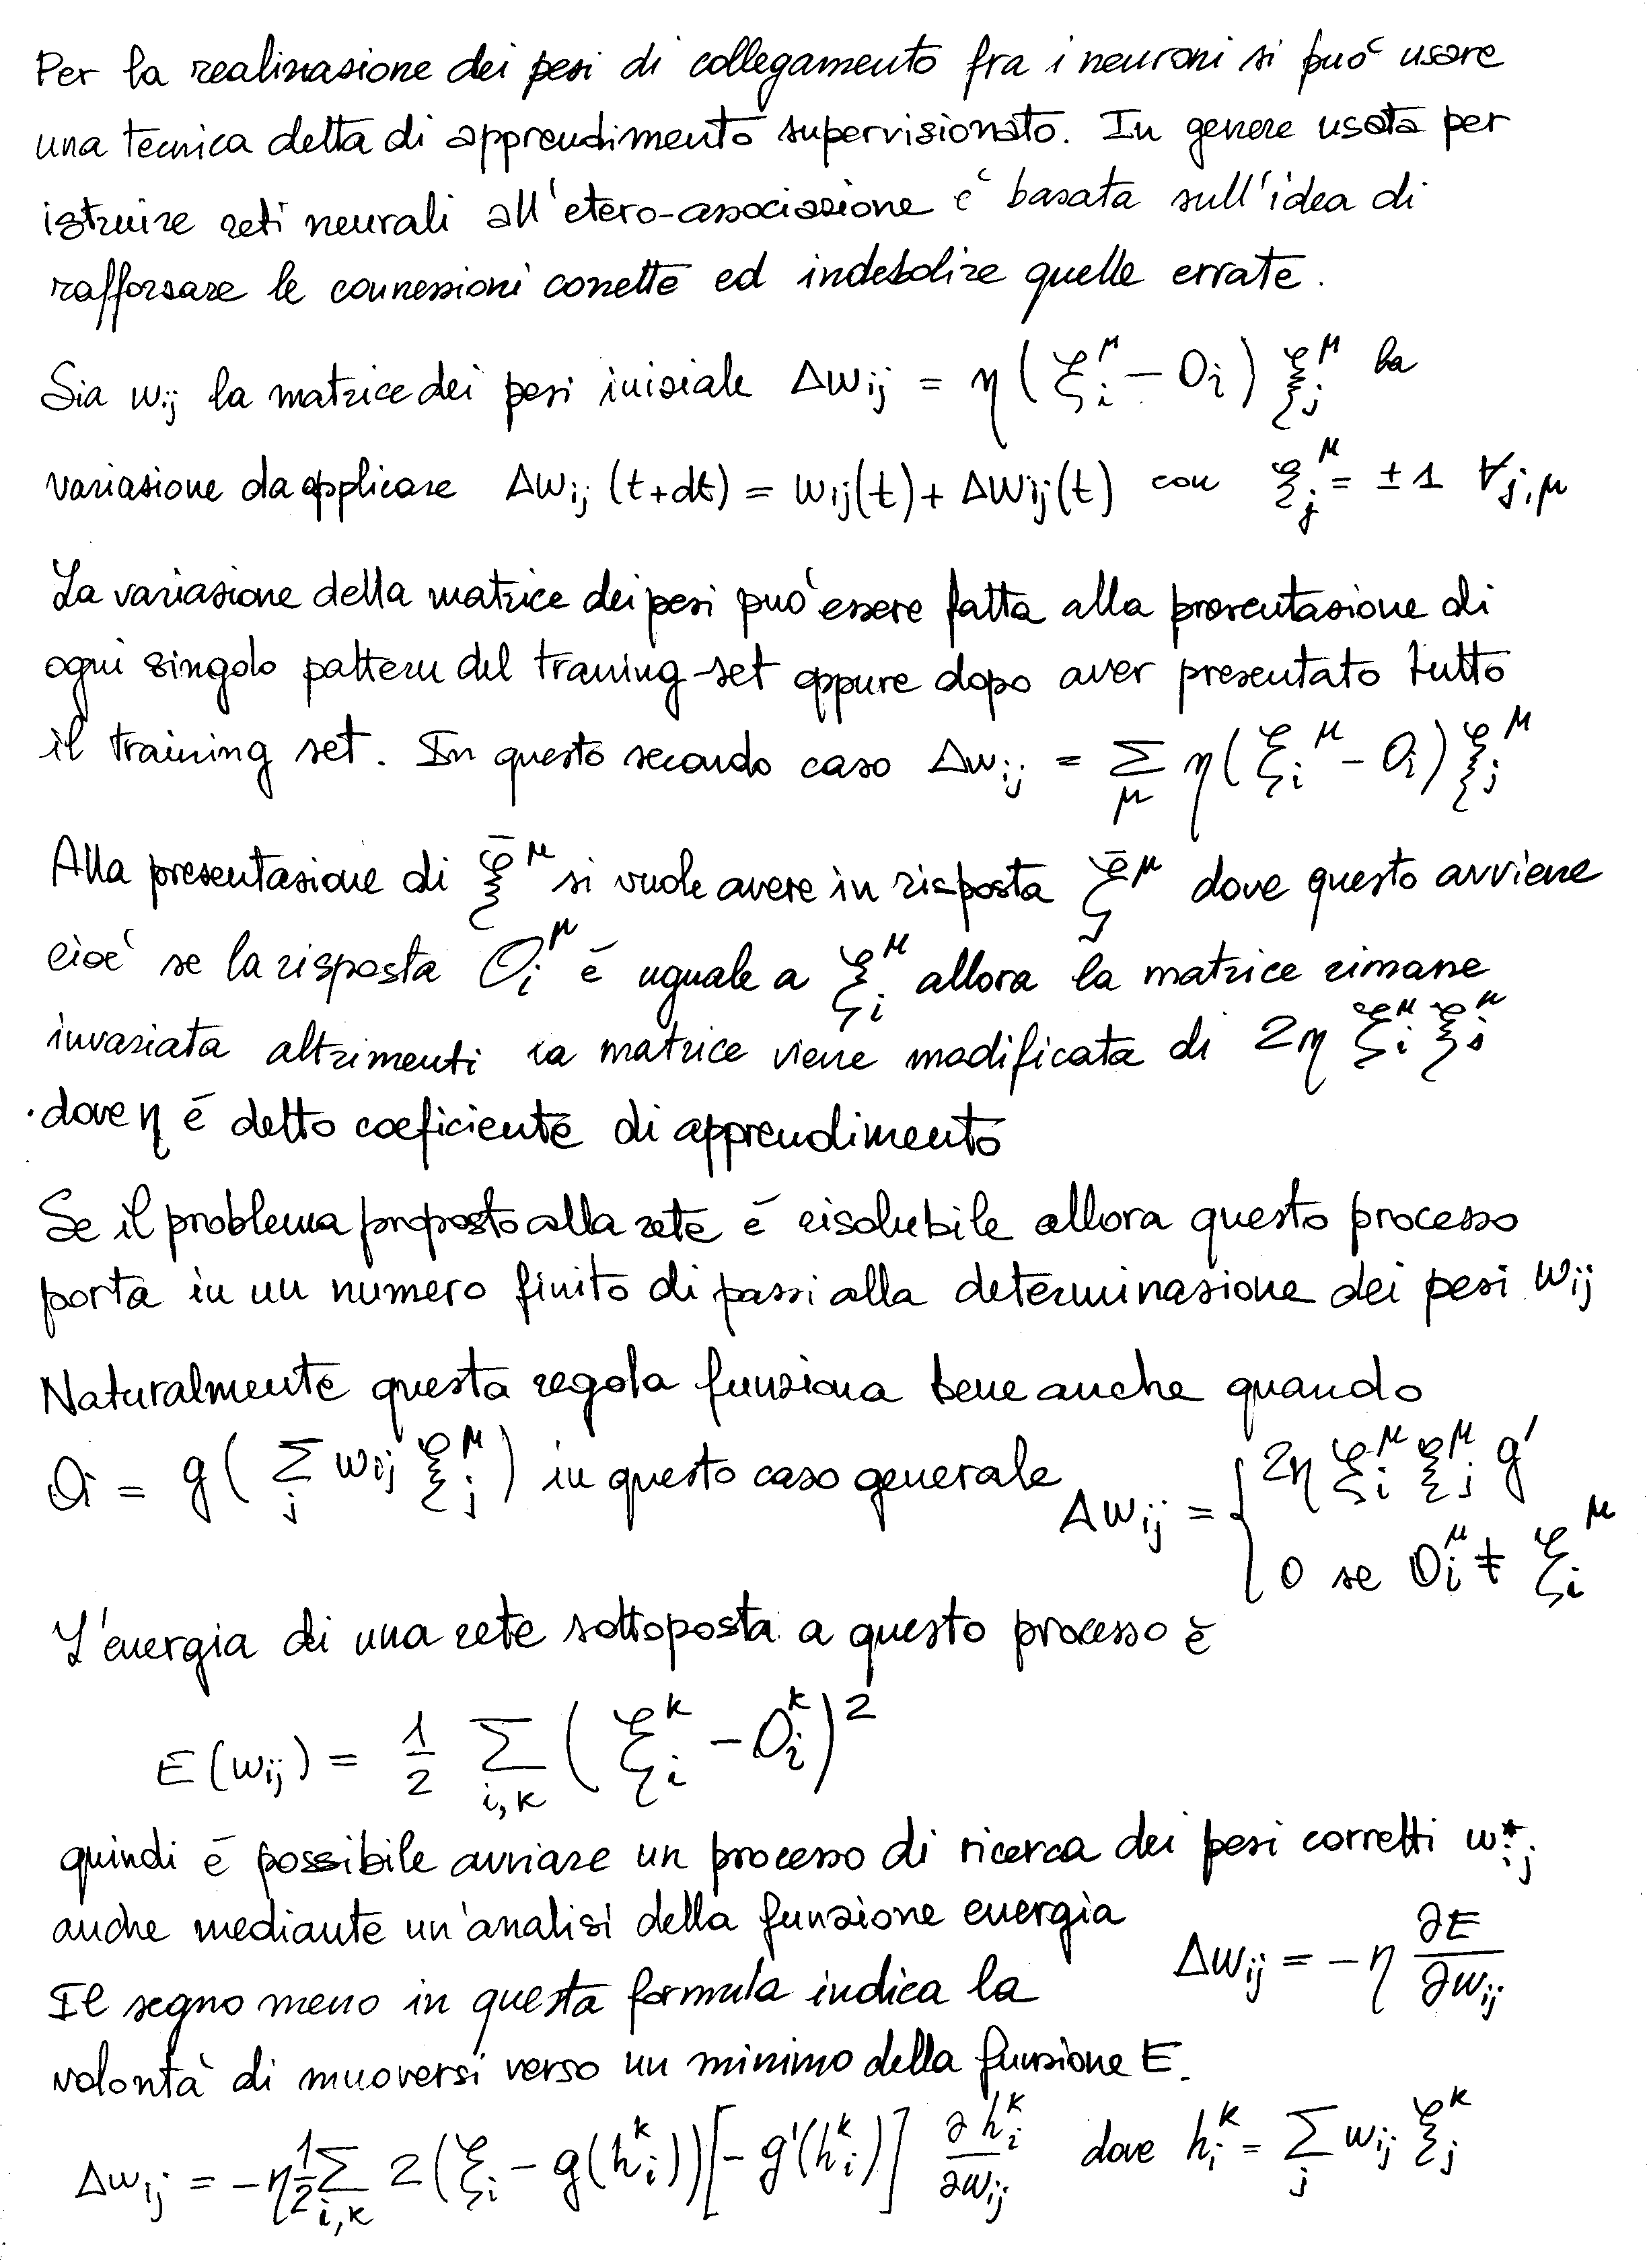 Per la realizzazione dei pesi di collegamento fra i neuroni si può usare
una tecnica detta di apprendimento supervisionato. In genere usata per
istruire reti neurali all'etero-associazione è basata sull'idea di
rafforzare le connessioni corrette ed indebolire quelle errate.
Sia wij la matrice dei pesi iniziale Δwij = η ( ζ_i^μ - Oi ) ξ_j^μ la
variazione da applicare Δwij (t+dt) = wij(t) + Δwij(t) con ξ_j^μ = ±1 ∀j,μ
La variazione della matrice dei pesi può essere fatta alla presentazione di
ogni singolo pattern del traning-set oppure dopo aver presentato tutto
il training set. In questo secondo caso Δwij = Σ_μ η( ζ_i^μ - Oi ) ξ_j^μ
Alla presentazione di ξ̄^μ si vuole avere in risposta ζ̄^μ dove questo avviene
cioè se la risposta O_i^μ è uguale a ζ_i^μ allora la matrice rimane
invariata altrimenti la matrice viene modificata di 2η ζ_i^μ ξ_j^μ
dove η è detto coeficiente di apprendimento
Se il problema proposto alla rete è risolubile allora questo processo
porta in un numero finito di passi alla determinazione dei pesi wij
Naturalmente questa regola funziona bene anche quando
Oi = g( Σ_j wij ξ_j^μ ) in questo caso generale Δwij = { 2η ζ_i^μ ξ_j^μ g'
0 se O_i^μ ≠ ζ_i^μ
L'energia di una rete sottoposta a questo processo è
E(wij) = 1/2 Σ_i,k ( ζ_i^k - O_i^k )²
quindi è possibile avviare un processo di ricerca dei pesi corretti w*ij
anche mediante un'analisi della funzione energia Δwij = -η ∂E/∂wij
Il segno meno in questa formula indica la
volontà di muoversi verso un minimo della funzione E.
Δwij = -η 1/2 Σ_i,k 2( ζ_i - g(h_i^k))[-g'(h_i^k)] ∂h_i^k/∂wij dove h_i^k = Σ_j wij ξ_j^k